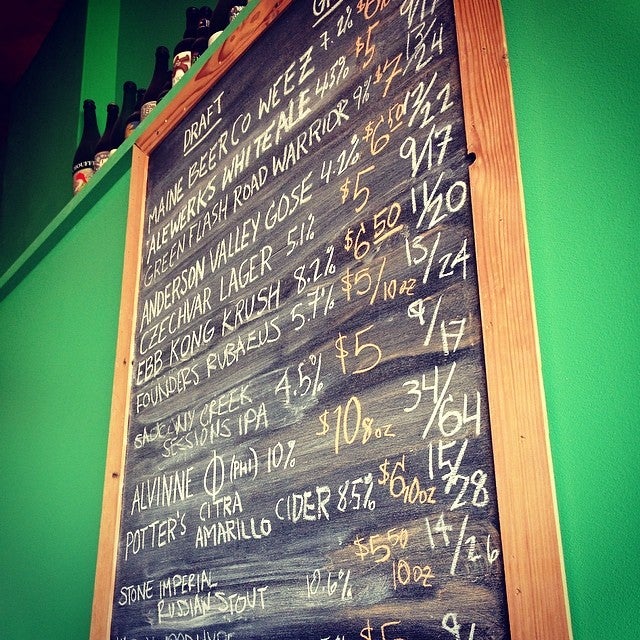 DRAFT
MAINE BEER CO WEEZ 7.2%
ALEWERKS WHITE ALE 4.3% $5 13/24
GREEN FLASH ROAD WARRIOR 9% $7
ANDERSON VALLEY GOSE 4.2% $6.50 13/22
CZECHVAR LAGER 5.1% $5 9/17
EBB KONG KRUSH 8.2% $6.50 11/20
FOUNDERS RUBAEUS 5.7% $5/10oz 13/24
SAUCONY CREEK SESSIONS IPA 4.5% $5 9/17
ALVINNE Φ (PHI) 10% $10 8oz 34/64
POTTER'S CITRA AMARILLO CIDER 8.5% $6 10oz 15/28
STONE IMPERIAL RUSSIAN STOUT 10.6% $5.50 10oz 14/26